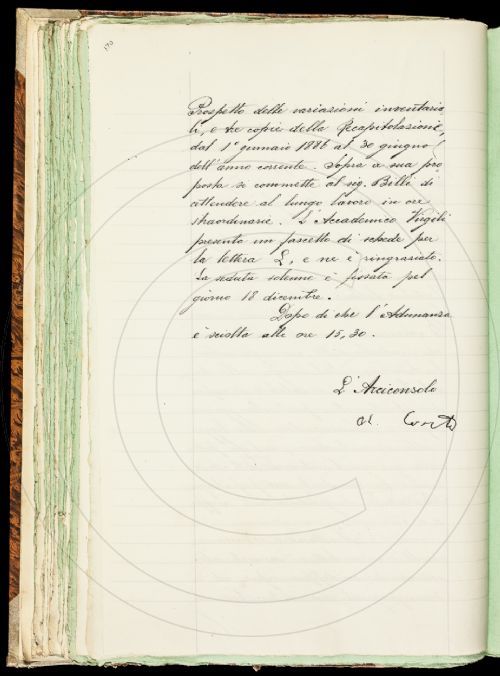 170
Prospetto delle variazioni inventaria
li, e tre copie della Recapitolazione,
dal 1° gennaio 1886 al 30 giugno
dell'anno corrente. Sopra a sua pro
posta si commette al sig. Billi di
attendere al lungo lavoro in ore
straordinarie. L'Accademico Virgili
presenta un fascetto di schede per
la lettera L, e ne è ringraziato.
La seduta solenne è fissata pel
giorno 18 dicembre.
Dopo di che l'Adunanza
è sciolta alle ore 15,30.
L'Arciconsolo